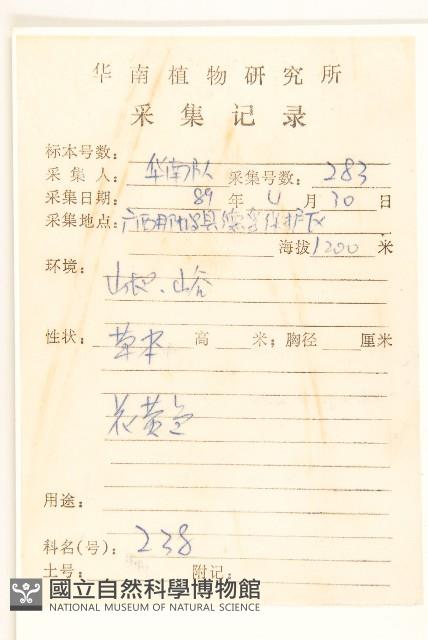 华南植物研究所
采集记录
标本号数:
采集人: 华南队 采集号数: 283
采集日期: 89 年 4 月 30 日
采集地点: 广西 县 保护区
海拔 1200 米
环境:
山坡、山谷
性状: 草本 高 米; 胸径 厘米
花黄色
用途:
科名(号): 238
土号: 附记:
國立自然科學博物館
NATIONAL MUSEUM OF NATURAL SCIENCE